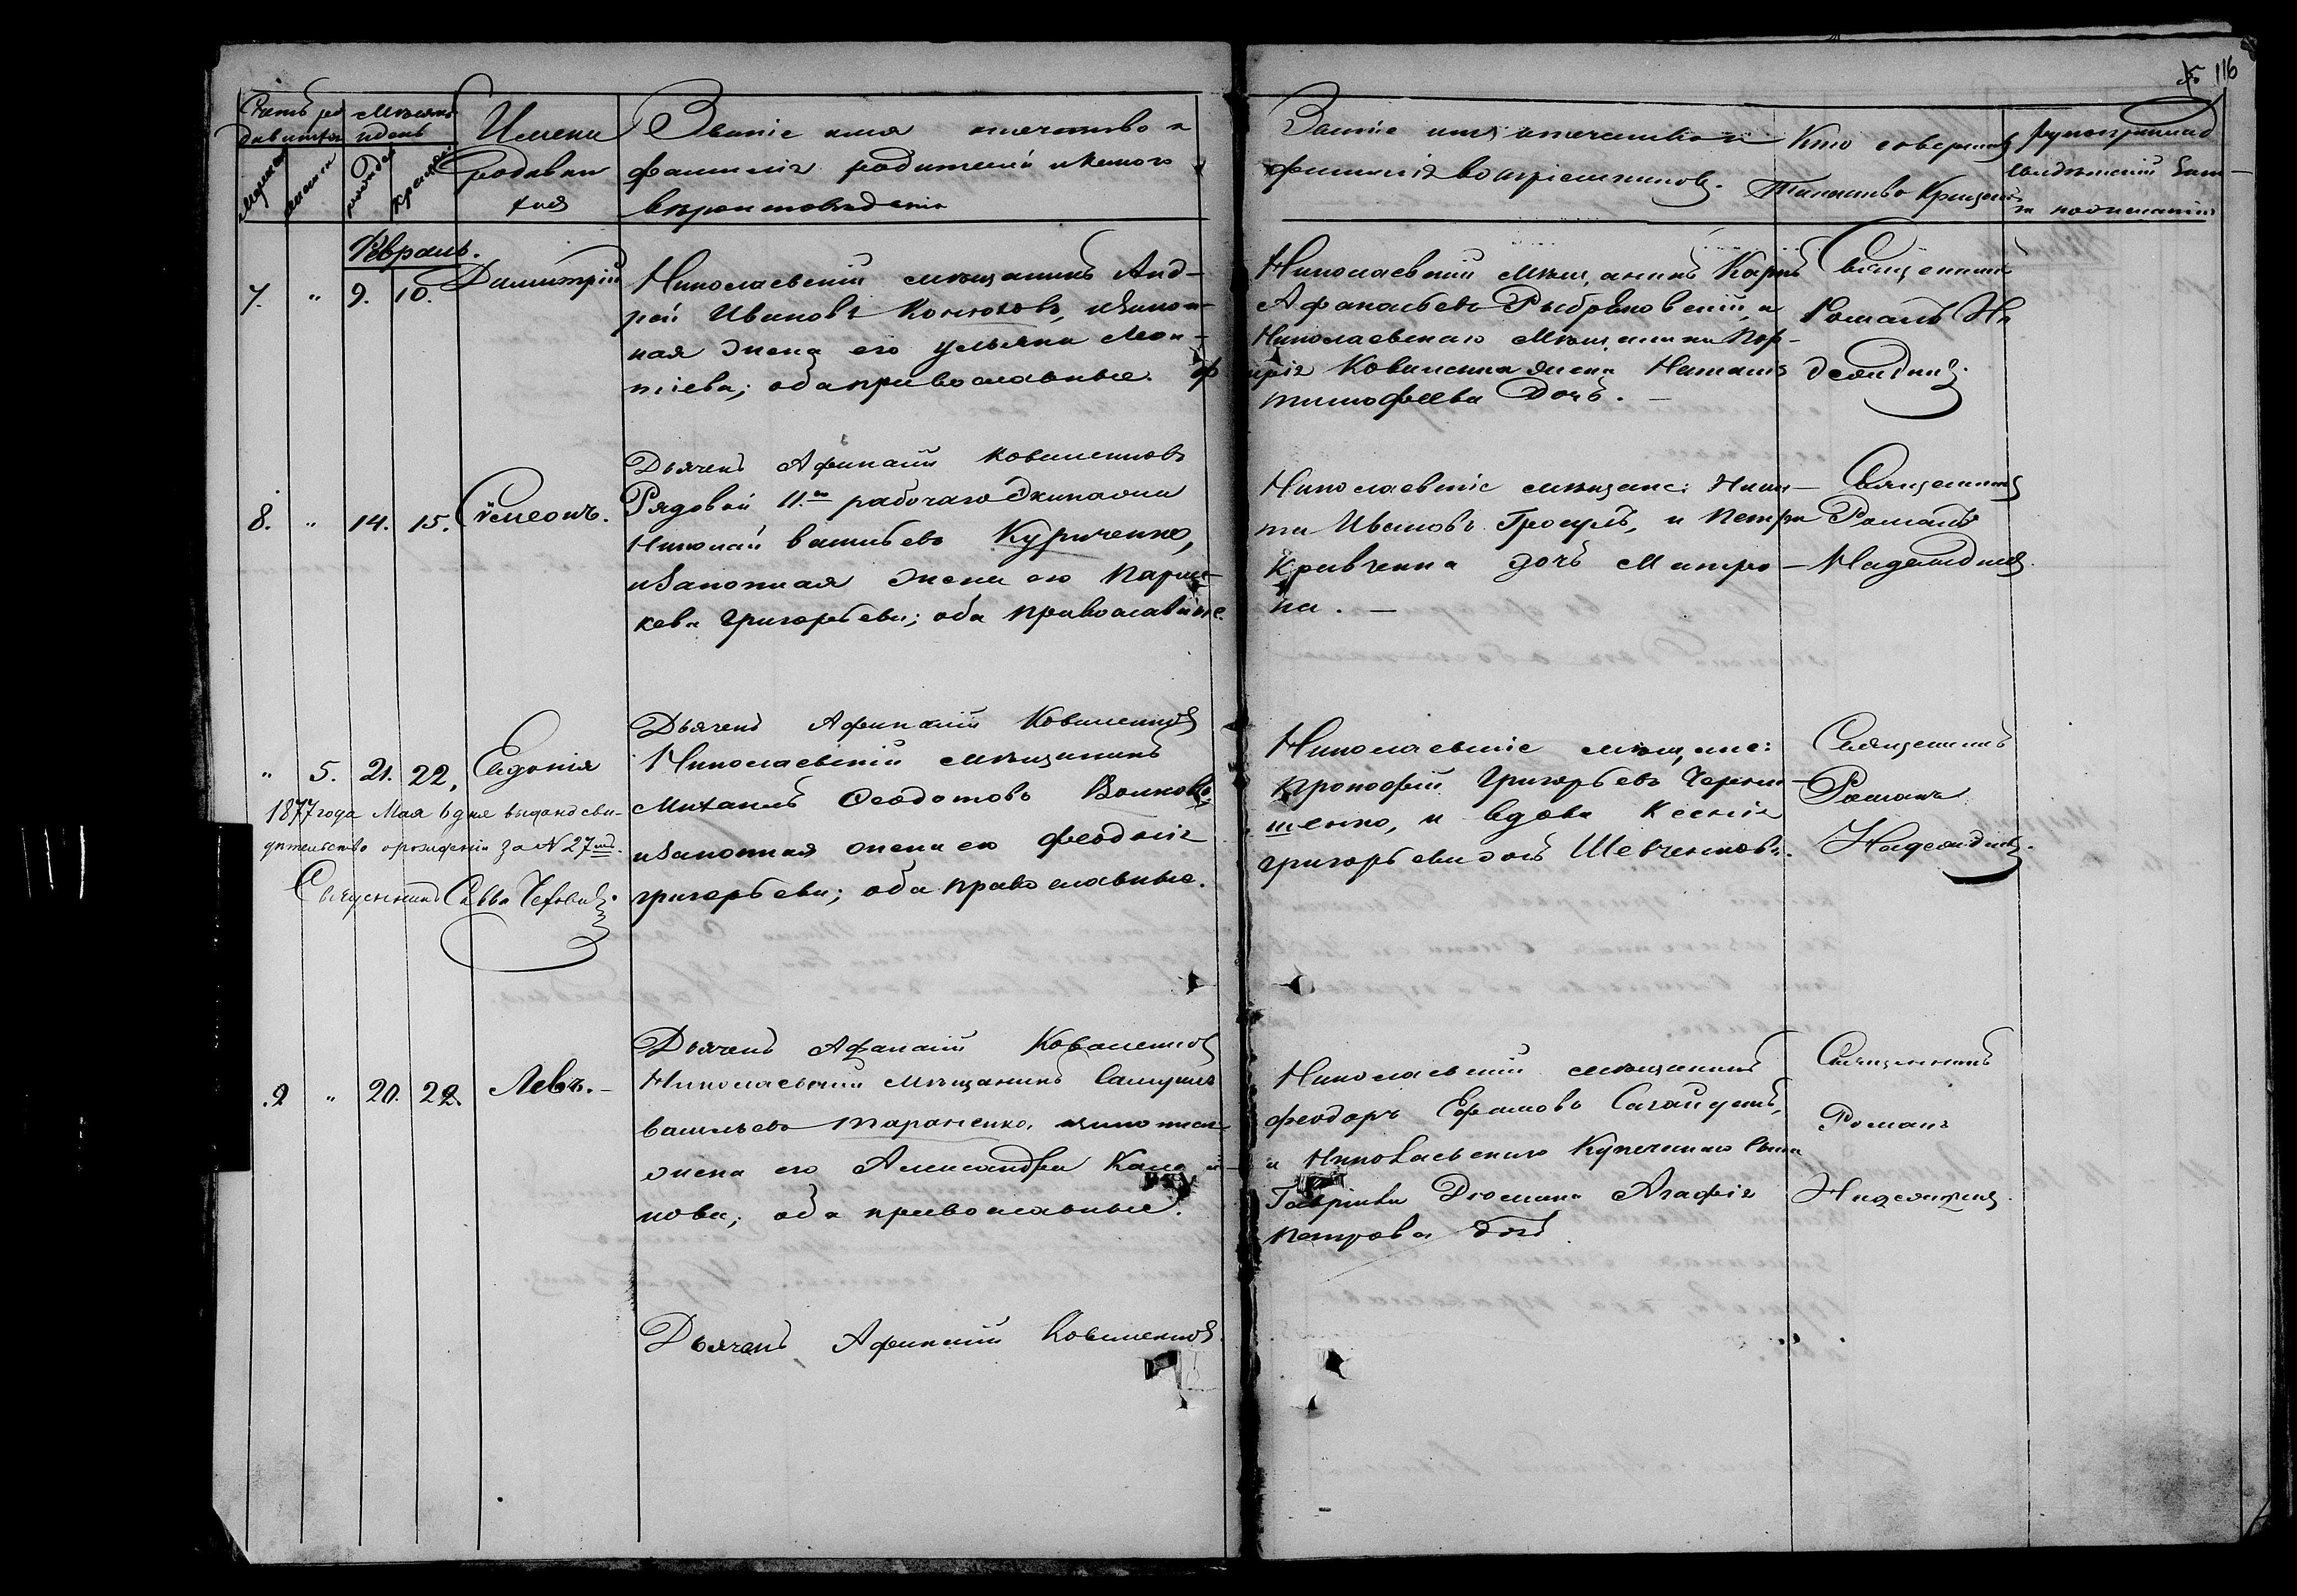 116
Счетъ ро
дившихся
Мужеска
женска
Мѣсяцъ
и день
рожден
крещен
Имена
родивши
хся
Званіе имя отечество и
фамилія родителей и какого
вѣроисповеданія
Званіе имя отечество и
фамилія воспріемниковъ.
Кто совершалъ
Таинство Крещенія
рукоприклад
свидѣтелей запи
си по желанію
Февраль.
7. " 9. 10. Димитрій
Николаевскій мѣщанинъ Анд-
рей Ивановъ Конюховъ, и закон-
ная жена его Ульяна Леон-
тіева; оба православные.
Николаевскій мѣщанинъ Карпъ
Афанасьевъ и
Николаевскаго мѣщанина Пор-
фирія Коваленка жена Наталія
тимофеева дочь. —
Священникъ
Романъ На
деждинъ.
Дьячекъ Афанасій Коваленковъ
8. " 14. 15. Симеонъ.
Рядовой 11го рабочаго экипажа
Николай васильевъ Куриченко,
и законная жена его Парас-
кева григорьева; оба православные.
Николаевскіе мѣщане: Ники-
та Ивановъ Гросулъ, и Петра
Кравченка дочь Матро-
на. —
Священникъ
Романъ
Надеждинъ.
Дьячекъ Афанасій Коваленковъ
" 5. 21. 22. Евдокія
1877 года Мая 6 дня выдано сви-
дѣтельство о рожденіи за N 27мъ.
Священникъ Савва
Николаевскій мѣщанинъ
Михаилъ Феодотовъ Волковъ
и законная жена его феодосія
григорьева; оба православные.
Николаевскіе мѣщане:
Прокофій Григорьевъ Черны-
шенко, и вдова Ксенія
григорьева дочь Шевченкова.
Священникъ
Романъ
Надеждинъ.
Дьячекъ Афанасій Коваленковъ
9 " 20. 22. Левъ. —
Николаевскій мѣщанинъ Самуилъ
васильевъ Тараненко, и законная
жена его Александра
нова; оба православные.
Николаевскій мѣщанинъ
феодоръ Ефимовъ
и Николаевскаго Купеческаго сына
Агафія
Петрова дочь
Священникъ
Романъ
Надеждинъ.
Дьячекъ Афанасій Коваленковъ.